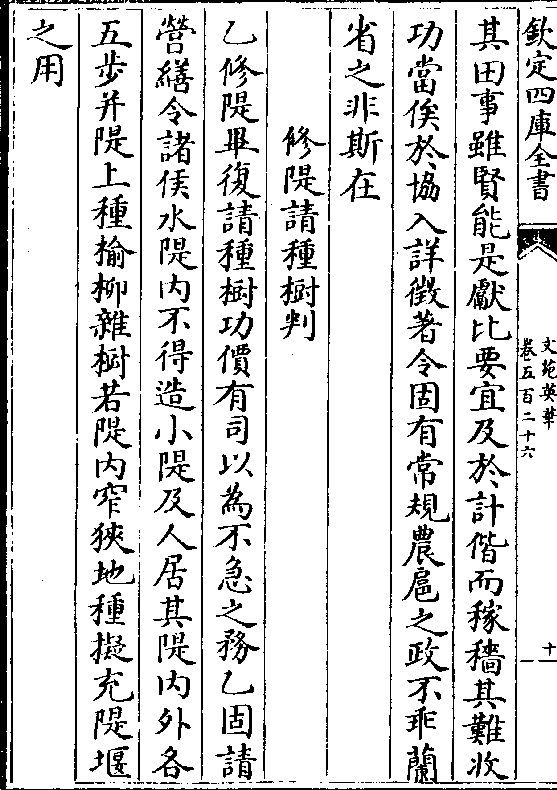 欽定四庫全書
文苑英華
卷五百二十六
十
其田事雖賢能是獻比要宜及於計偕而稼穡其難收
功當俟於協入詳徵著令固有常規農扈之政不乖蘭
省之非斯在
修隄請種樹判
乙修隄畢復請種樹功價有司以為不急之務乙固請
營繕令諸侯水隄內不得造小隄及人居其隄內外各
五步并隄上種榆柳雜樹若隄內窄狹地種擬充隄堰
之用